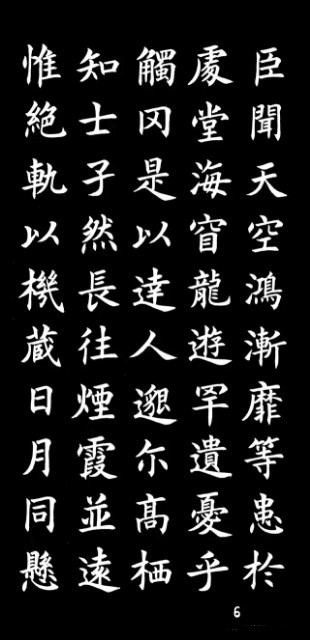 臣聞天空鴻漸靡等患於
處堂海窅龍遊罕遺憂乎
觸冈是以達人邈尒髙栖
知士孑然長往煙霞並遠
惟絕軌以機蔵日月同懸
6